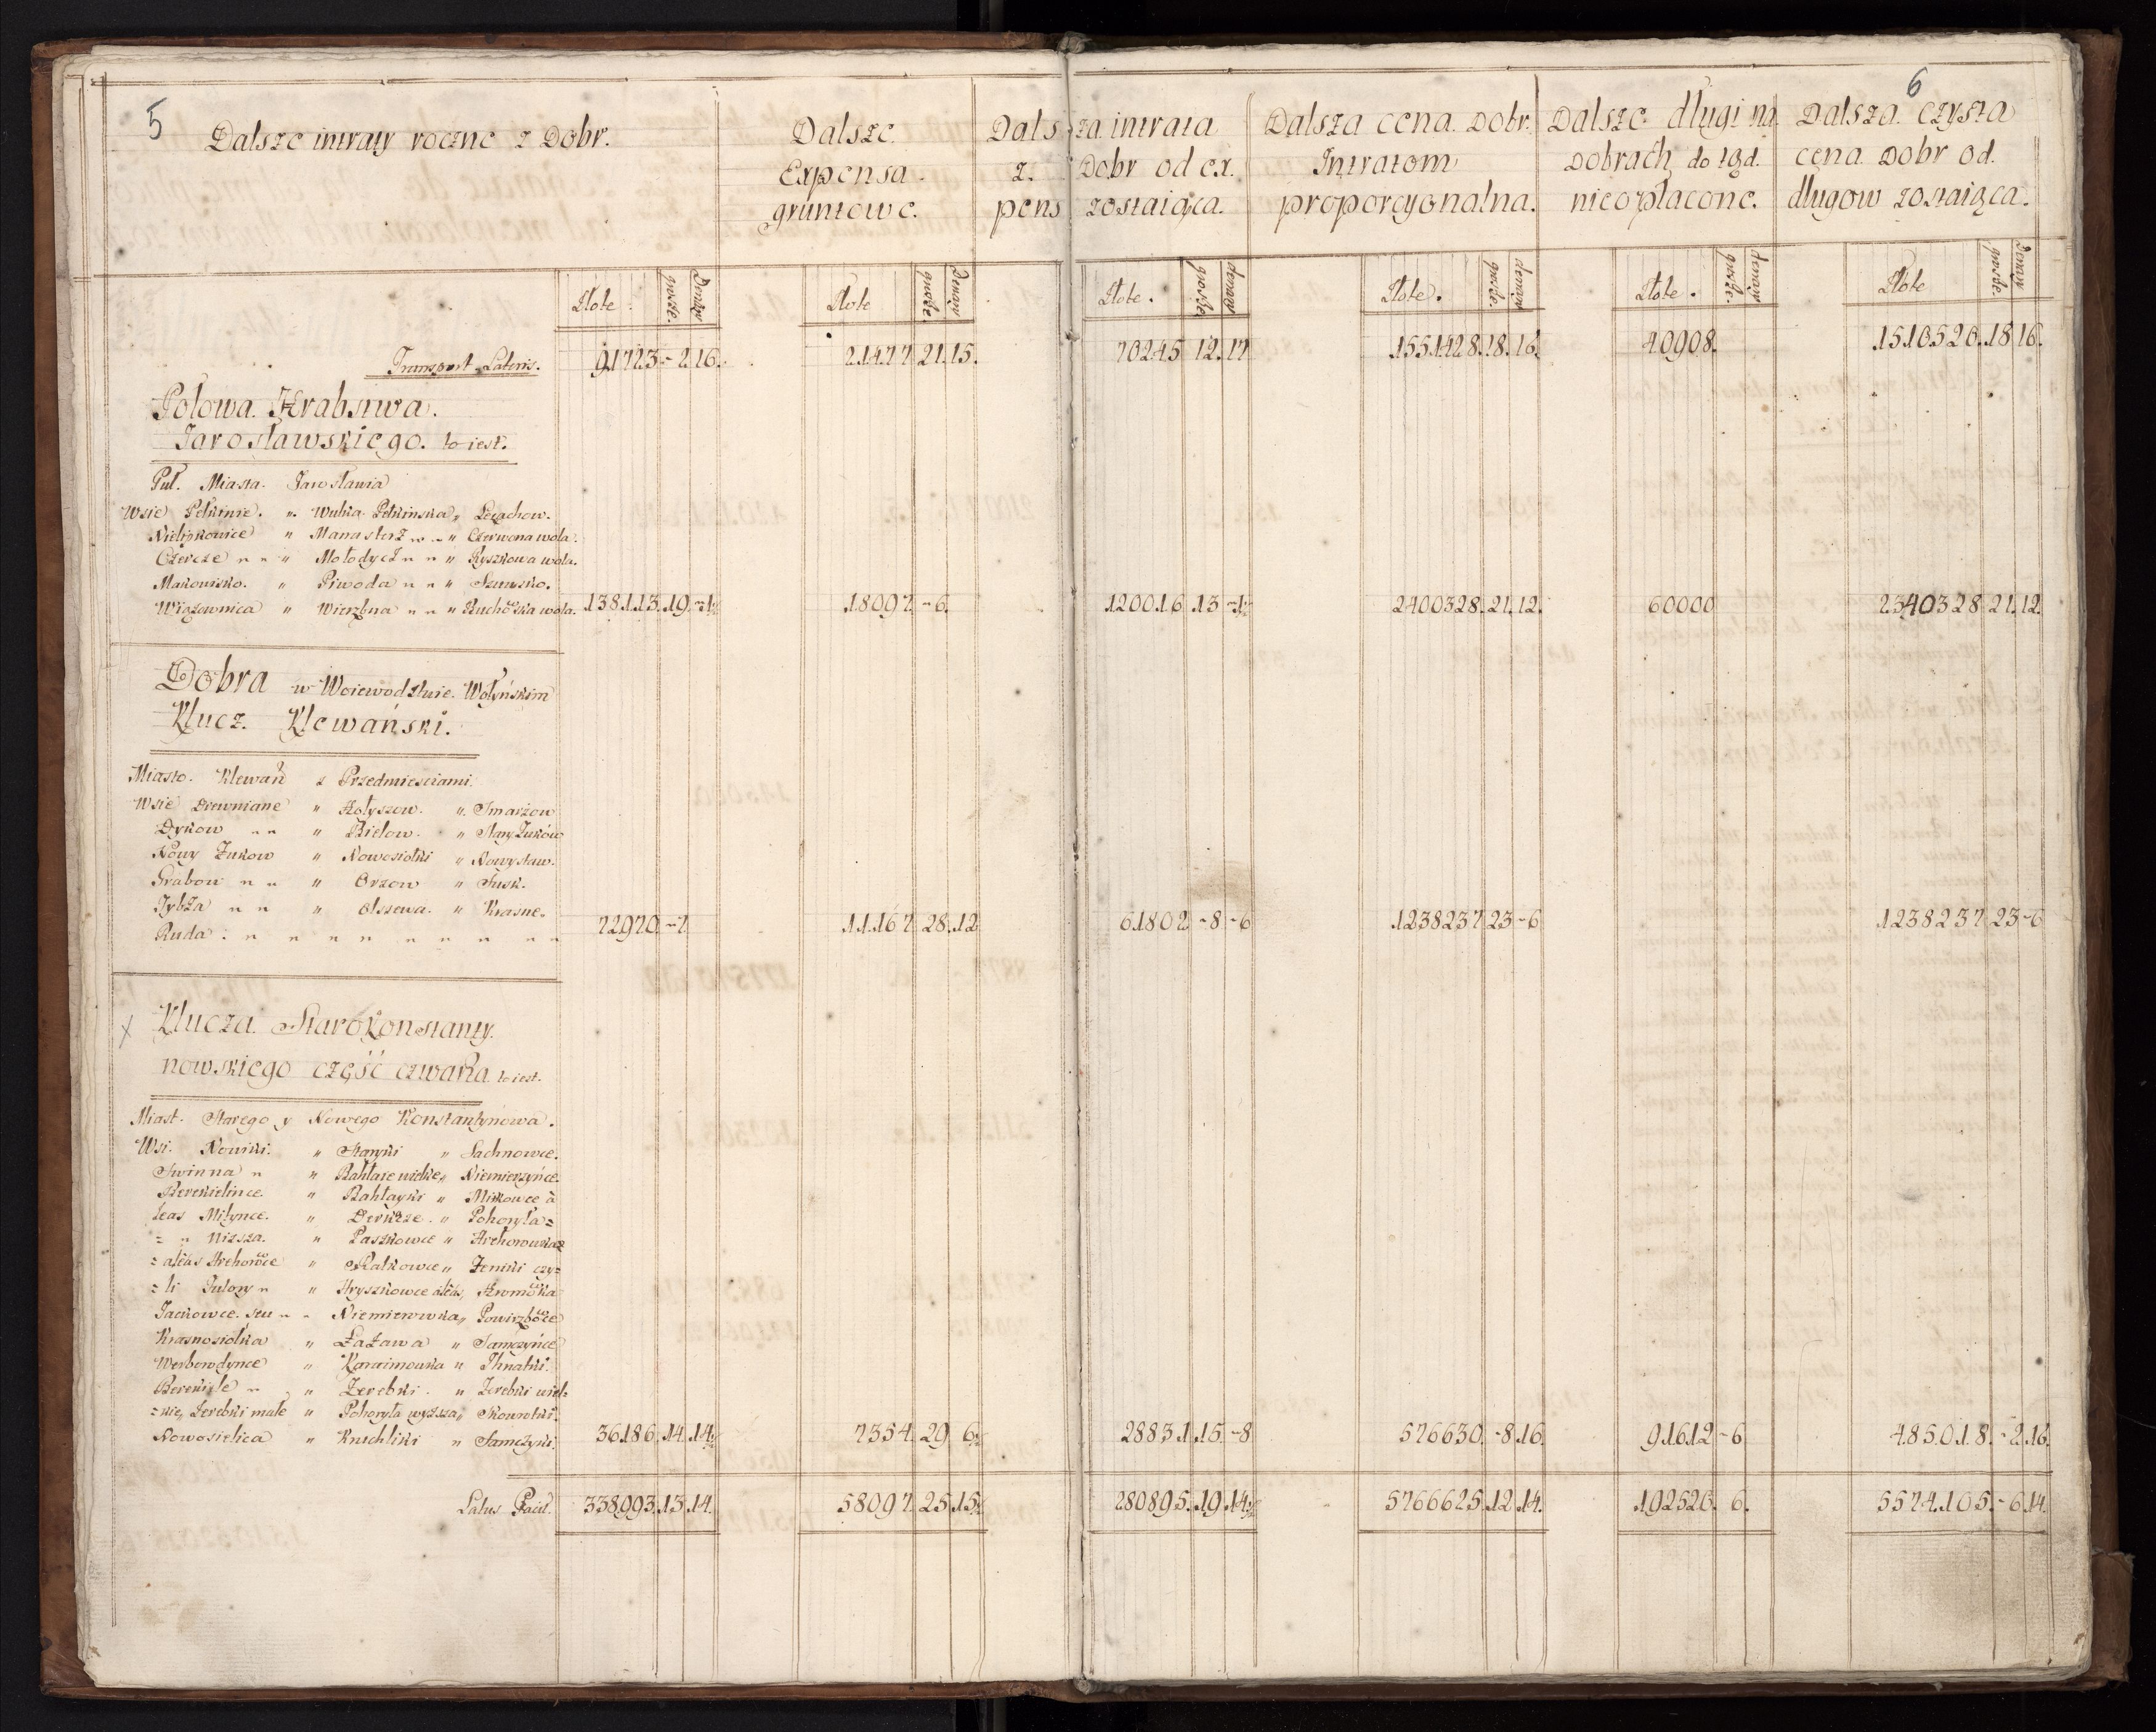 5
6
Dalsze intraty roczne z Dobr.
Dalsze
Expensa
gruntowe.
Dalsza intrata
z. Dobr od ex.
pens zostaiąca.
Dalsza cena Dobr.
Intratom
proporcyonalna.
Dalsze długi na
Dobrach do tąd.
nieopłacone.
Dalsza czysta
cena Dobr od.
długow zostaiąca.
Złote. grosze. Denary Złote grosze. Denary Złote. grosze denary Złote. grosze. denary Złote. grosze. denary Złote grosze. Denary
Transport Lateris. 91723.-2.16. 21477.21.15. 70245 12.17 1551428.18.16. 40908. 1510520.18 16.
Polowa Hrabstwa.
Jarosławskiego. to iest.
Puł. Miasta. Jarosławia
Wsie Pełkinie. " Wulka Pełkinska " Leżachow.
Nielipkowice " Manasterz " " Czerwona wola.
Czercze " " " Mołodycz " " " Ryszkowa wola.
Makowisko. " Piwoda " " " Surmsko.
Wiązownica " Wierzbna " " " Zuchoska wola. 138113.19.-1½ 18097.-6. 120016.13-1½ 2400328.21.12. 60000 2340328 21.12.
Dobra w Woiewodztwie. Wołyńskim
Klucz. Klewański.
Miasto. Klewań z Przedmiesciami.
Wsie Drewniane " Hołyszow. " Smarżow
Dykow " " " Bielow. " Stary Zuków
Nowy Zukow " Nowosiołki " Nowystaw.
Grabow " " " Orzow " Susk.
Jybża " " " Olszewa. " Krasne.
Ruda: " " " " " " " " " 72970.-7. 11167.28.12 61802 -8-6 1238237 23-6 1238237 23-6
x Klucza. Starokonstanty.
nowskiego część czwarta to iest.
Miast. Starego y Nowego Konstantynowa.
Wsi. Nowiki. " Staryki " Sachnowce.
Swinna " " Bahłaie wielkie " Niemierzyńce.
Berekielince. " Bahłayki " Misikowce à
leas Miłynce. " Derkacze. " Pohoryła=
= " Nizsza. " Paszkowce " Hrehorowka=
=alias Hrehorowce " Rałkowce " Zeniki czy=
=li Putory " " Hryszkowce alias,
Jackowce. seu " " Niemierowka "
Krasnosiołka " Łażawa " Samczyńce
Werborodynce " Karaimowka " Ihnatki.
Berekiele " " Zerebki. " Zerebki wiel=
=kie, Zerebki małe " Pohoryła wyższa " Skowrotki.
Nowosielica " Kruchliki " Samczyki. 36186.14.14½ 7354.29 6½ 28831.15.-8 576630.-8.16. 91612-6 485018.-2.16.
Latus Facit. 338993.13.14. 58097.25.15½ 280895.19.14½ 5766625.12.14. 192520. 6. 5574105.-6.14.